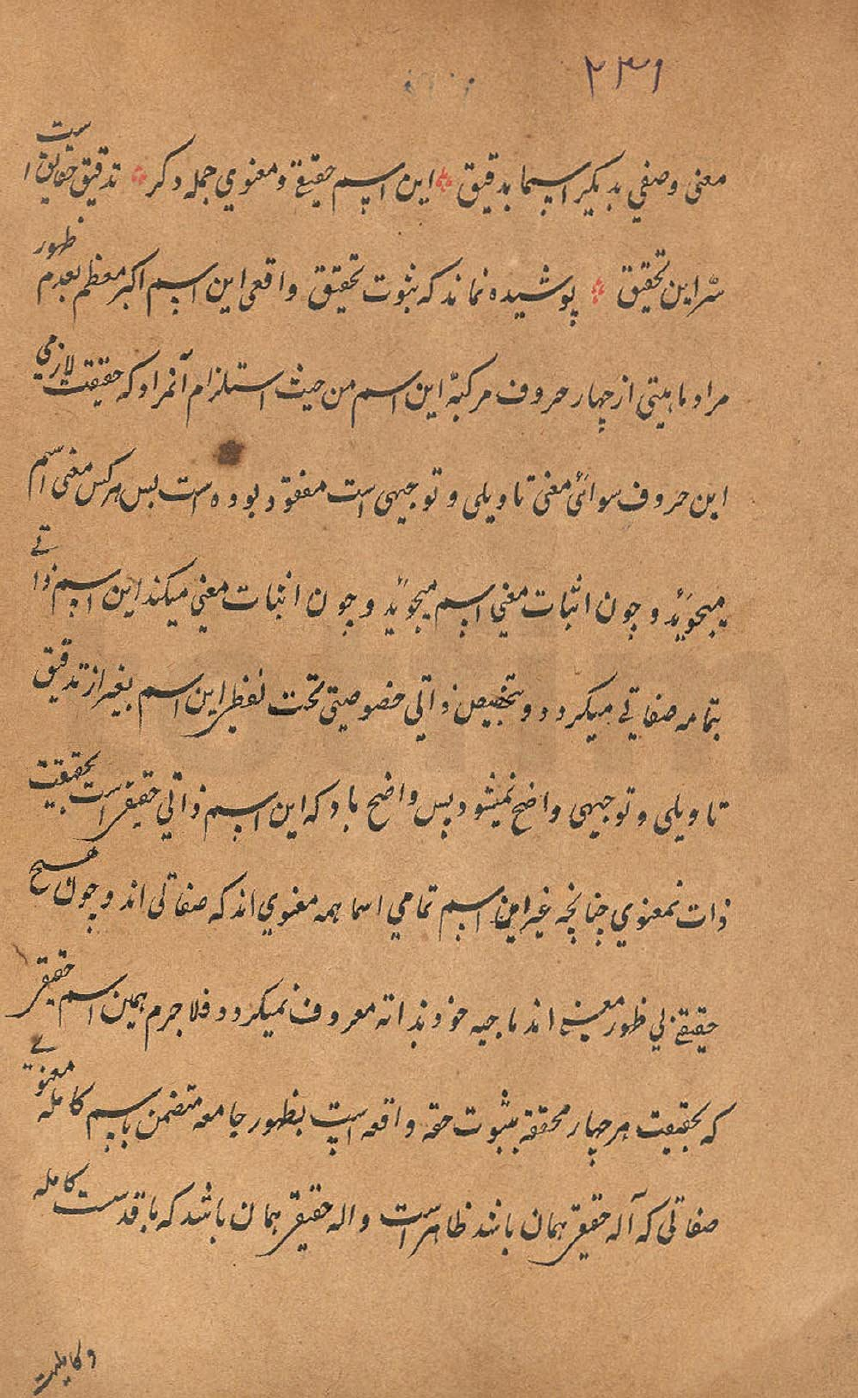 ۲۳۱
معنی وصفی بدیکر اسما بدقیق این اسم حقیقة و معنوی جمله دکر تدقیق حقایق است
سر این تحقیق پوشیده نماند که ثبوت تحقیق واقعی این اسم اکبر معظم بعدم ظهور
مراد ماهیتی از چهار حروف مرکبه این اسم من حیث استلزام آنمراد که حقیقت لازمی
این حروف سوائی معنی تاویلی و توجیهی است مفقود بوده است پس هرکس معنی اسم
میجوید و چون اثبات معنی اسم میجوید و چون اثبات معنی میکند این اسم ذاتے
بتمامه صفاتے میکردد و بتخصیص ذاتی خصوصیتی تحت لفظ این اسم بغیر از تدقیق
تاویلی و توجیهی واضح نمیشود پس واضح باد که این اسم ذاتی حقیقی است بحقیقت
ذات نمعنوی چنانچه غیر این اسم تمامی اسما همه معنوی اند که صفاتی اند و چون هیچ
حقیقے بی ظهور معنی اند ما خود بذاته معروف نمیکردد فلاجرم همین اسم حقیقی
که بحقیقت هر چهار محققه بثبوت حقه واقعه است بظهور جامعه متضمن باسم کامله معنوے
صفاتی که آله حقیقی همان باشد ظاهر است و اله حقیقی همان باشد که با قدست کامله
و کاملیت